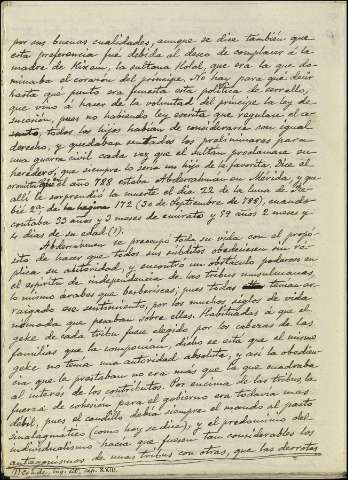 por sus buenas cualidades, aunque se dice también que
esta preferencia fué debida al deseo de complacer á la
madre de Hixem, la sultana Holal, que era la que do-
minaba el corazón del príncipe. No hay para qué decir
hasta qué punto era funesta esta política de serrallo,
que vino á hacer de la voluntad del príncipe la ley de
sucesión, pues no habiendo ley escrita que regulase el
todos los hijos habían de considerarse con igual
derecho, y quedaban sentados los preliminares para
una guerra civil cada vez que el sultán proclamase un
heredero, que siempre lo sería un hijo de la favorita. Dice el
que el año 788 estaba Abderrahman en Mérida, y que
allí le sorprendió la muerte el día 22 de la luna de Re-
bie 2ª de la hégira 172 (30 de Septiembre de 788), cuando
contaba 33 años y 3 meses de emirato y 59 años 2 meses y
4 días de su edad (1).
Abderrahman se preocupó toda su vida con el propó-
sito de hacer que todos sus súbditos obedeciesen sin ré-
plica su autoridad, y encontró un obstáculo poderoso en
el espíritu de independencia de las tribus musulmanas,
lo mismo árabes que berberiscas; pues todas tenían ar-
raigado ese sentimiento, por los muchos siglos de vida
nómada que pesaban sobre ellas. Habituadas á que el
jeke de cada tribu fuese elegido por los cabezas de las
familias que la componían, dicho se está que el mismo
jeke no tenía una autoridad absoluta, y así la obedien-
cia que le prestaban no era más que la que cuadraba
al interés de los contribulos. Por encima de las tribus la
fuerza de cohesión para el gobierno era todavía más
débil, pues el caudillo debía siempre el mando al pacto
sinalagmático (como hoy se dice), y el predominio del
individualismo hacía que fuesen tan considerables los
antagonismos de unas tribus con otras, que las derrotas
(1) Conde, ing. cit., cap. XXIII.